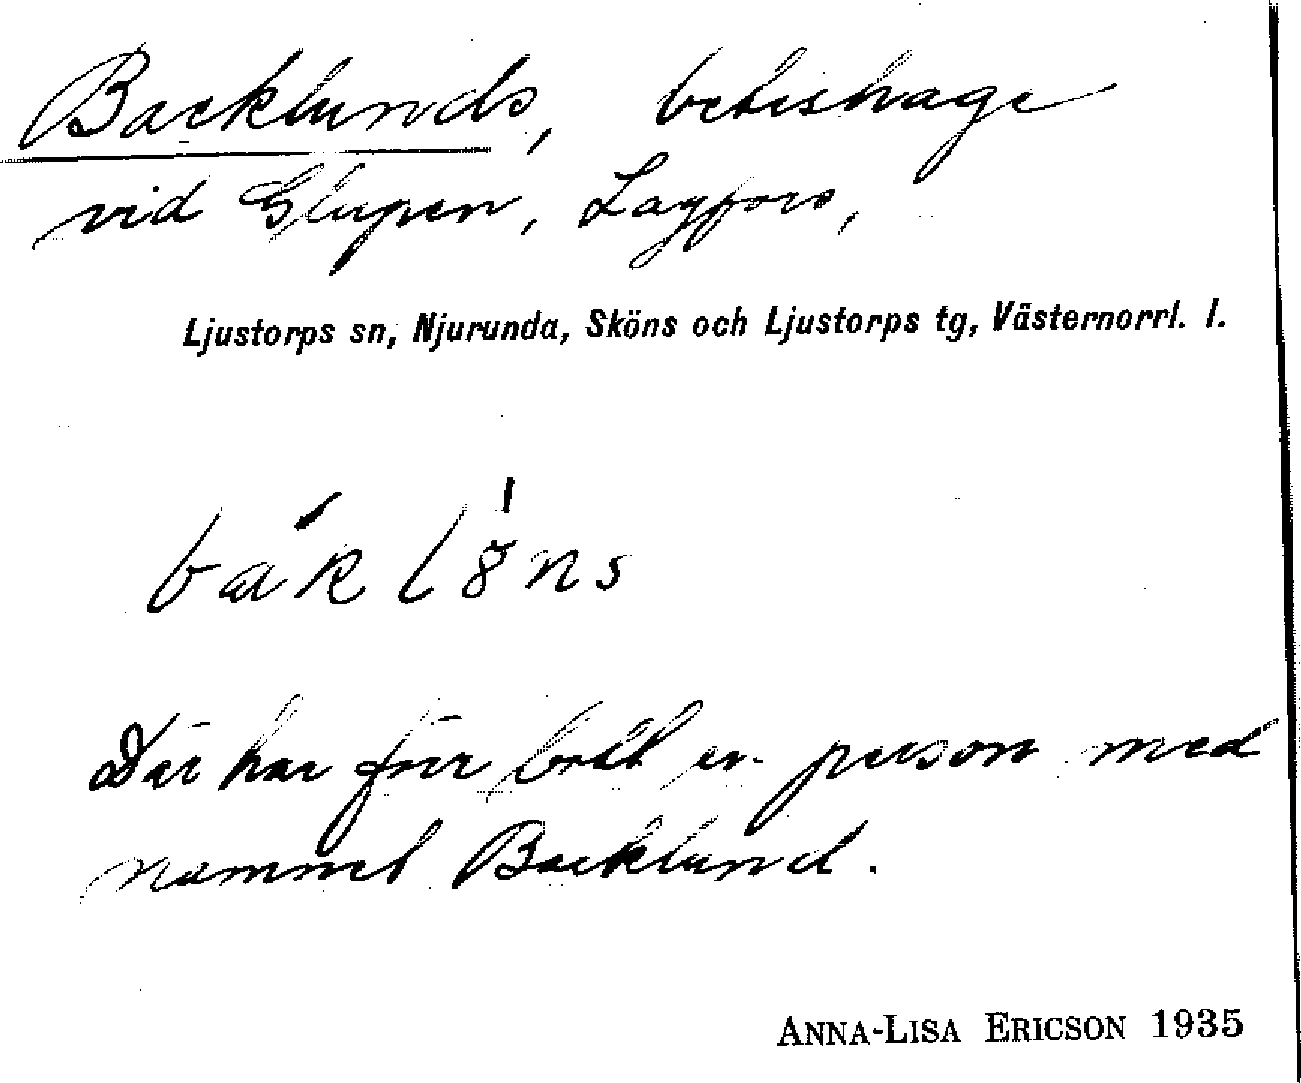 Backlunds, beteshage
vid Glupen, Lagfors,
Ljustorps sn, Njurunda, Sköns och Ljustorps tg, Västernorrl. l.
bàklȣ̍ns
Där har förr bott en person med
namnet Backlund.
ANNA-LISA ERICSON 1935